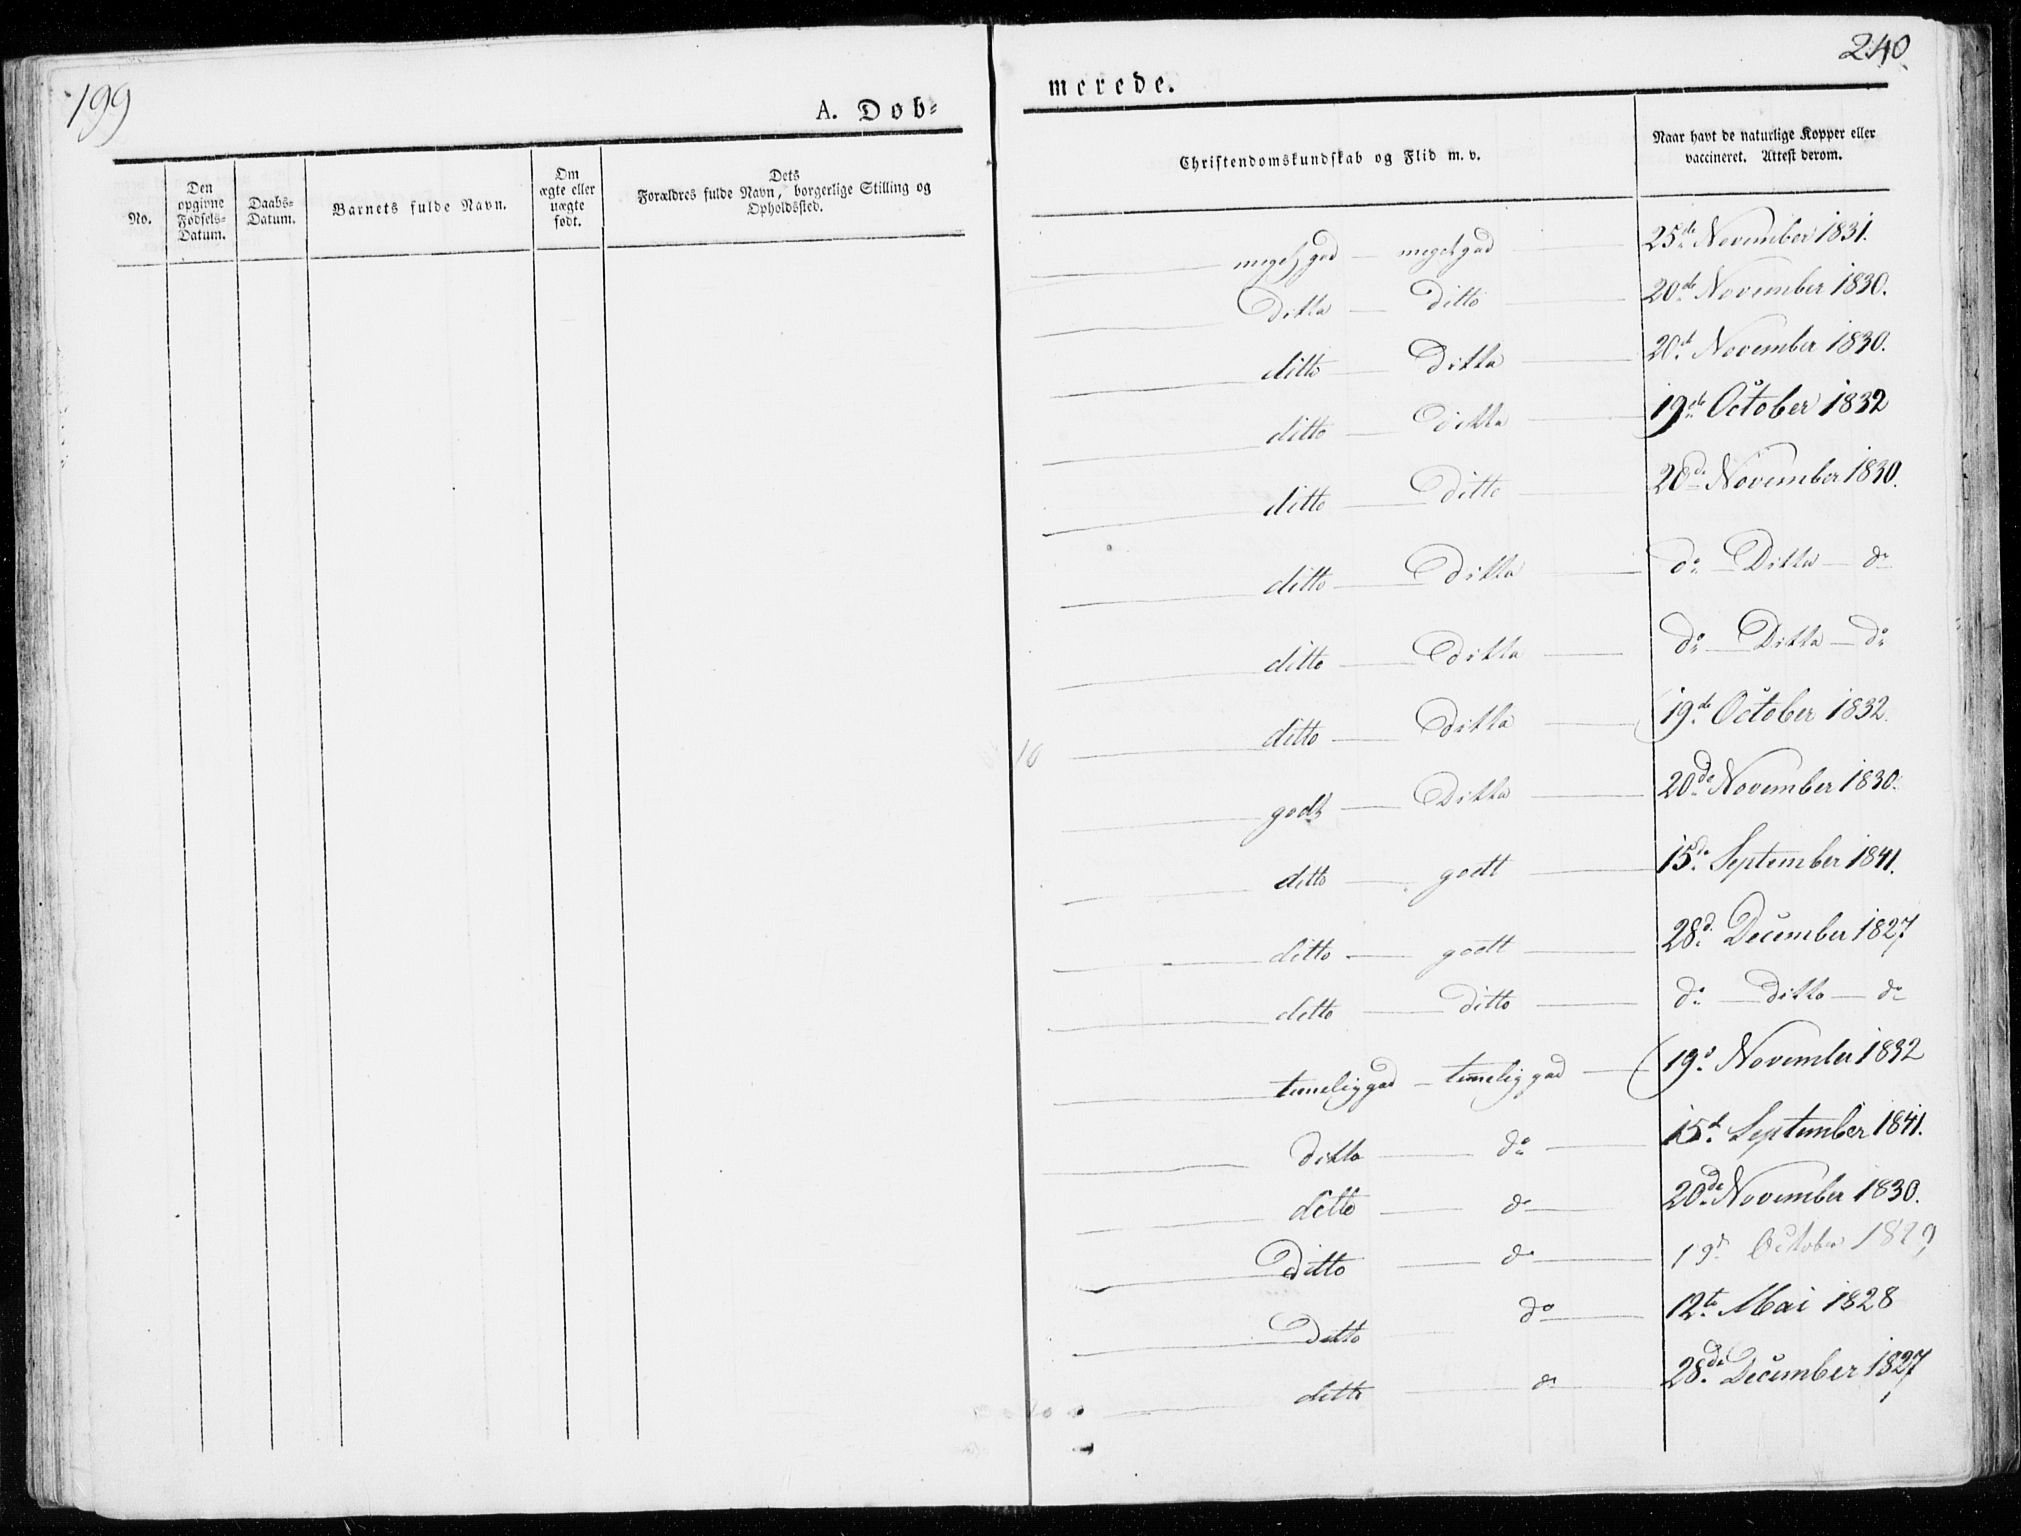 199
A. Døb-
No.
Den
opgivne
Fødsels-
Datum.
Daabs-
Datum.
Barnets fulde Navn.
Om
ægte eller
uægte
født.
Dets
Forældres fulde Navn, borgerlige Stilling og
Opholdssted.
240
merede.
Christendomskundskab og Flid m. v.
Naar havt de naturlige Kopper eller
vaccineret. Attest derom.
meget god — meget god — 25de November 1831.
Ditto — Ditto — 20de November 1830.
ditto — Ditto — 20d November 1830.
ditto — Ditto — 19de October 1832
ditto — Ditto — 20de November 1830.
ditto — Ditto — do — Ditto — do
ditto — Ditto — do — Ditto — do
ditto — Ditto — 19de October 1832.
10
godt — Ditto — 20de November 1830.
ditto — godt — 15de September 1841.
ditto — godt — 28d December 1827
ditto — ditto — do — ditto — do
temelig god — temelig god — 19d November 1832
ditto — do — 15d September 1841.
ditto — do — 20de November 1830.
Ditto — do — 19d October 1829
Ditto — do — 12te Mai 1828
ditto — do — 28de December 1827